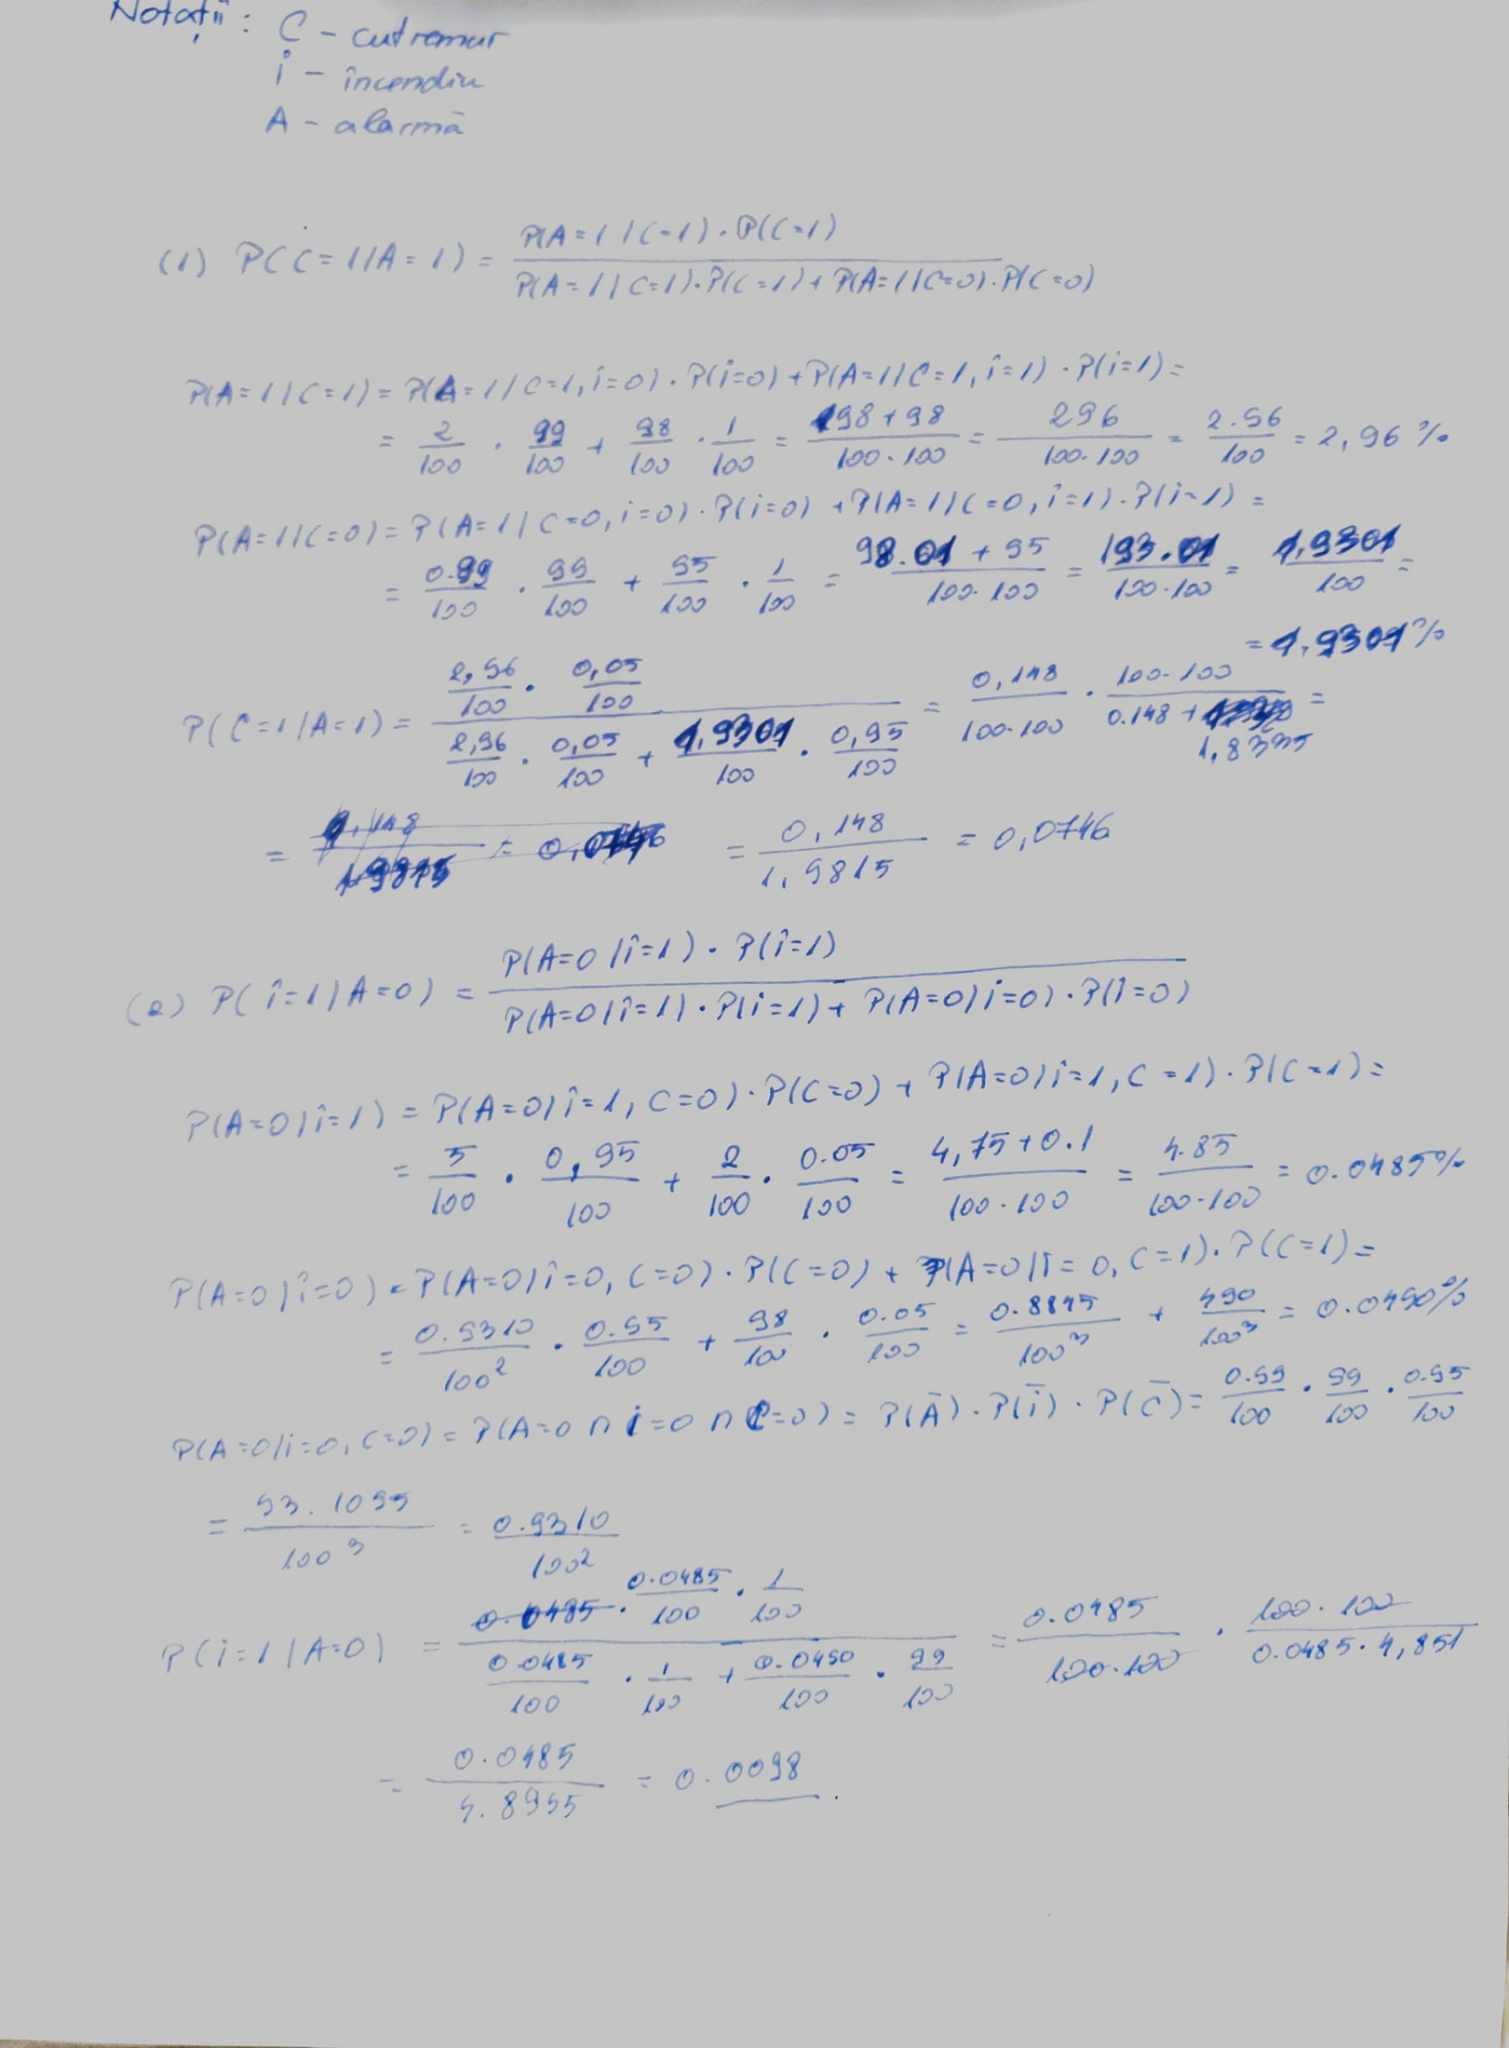 Notații: C - cutremur
i - încendiu
A - alarmă
(1) P(C=1|A=1) = P(A=1|C=1)·P(C=1) / P(A=1|C=1)·P(C=1)+P(A=1|C=0)·P(C=0)
P(A=1|C=1) = P(A=1|C=1,î=0)·P(i=0)+P(A=1|C=1,î=1)·P(i=1) =
= 2/100 · 99/100 + 98/100 · 1/100 = 198+98 / 100·100 = 296 / 100·100 = 2.96/100 = 2,96%
P(A=1|C=0) = P(A=1|C=0,i=0)·P(i=0) + P(A=1|C=0,î=1)·P(i=1) =
= 0.99/100 · 99/100 + 95/100 · 1/100 = 98.01 + 95 / 100·100 = 193.01 / 100·100 = 1,9301/100 =
= 1.9301%
P(C=1|A=1) = 2,96/100 · 0,05/100 / 2,96/100 · 0,05/100 + 1,9301/100 · 0,95/100 = 0,148 / 100·100 · 100·100 / 0.148 + 1,8335 =
= 0,148 / 1,9815 = 0,0746
(2) P(î=1|A=0) = P(A=0|î=1)·P(î=1) / P(A=0|î=1)·P(i=1)+P(A=0|i=0)·P(î=0)
P(A=0|î=1) = P(A=0|î=1, C=0)·P(C=0) + P(A=0|î=1, C=1)·P(C=1) =
= 5/100 · 0,95/100 + 2/100 · 0.05/100 = 4,75+0.1 / 100·100 = 4.85 / 100·100 = 0.0485%
P(A=0|î=0) = P(A=0|î=0, C=0)·P(C=0) + P(A=0|î=0, C=1)·P(C=1) =
= 0.9310/100² · 0.95/100 + 98/100 · 0.05/100 = 0.8845/100³ + 490/100³ = 0.0490%
P(A=0|i=0, C=0) = P(A=0 ∩ i=0 ∩ C=0) = P(Ā)·P(ī)·P(C̄) = 0.99/100 · 99/100 · 0.95/100
= 93.1095/100³ = 0.9310/100²
P(i=1|A=0) = 0.0485/100 · 1/100 / 0.0485/100 · 1/100 + 0.0490/100 · 99/100 = 0.0485 / 100·100 · 100·100 / 0.0485·4,851
= 0.0485 / 4.8995 = 0.0098.